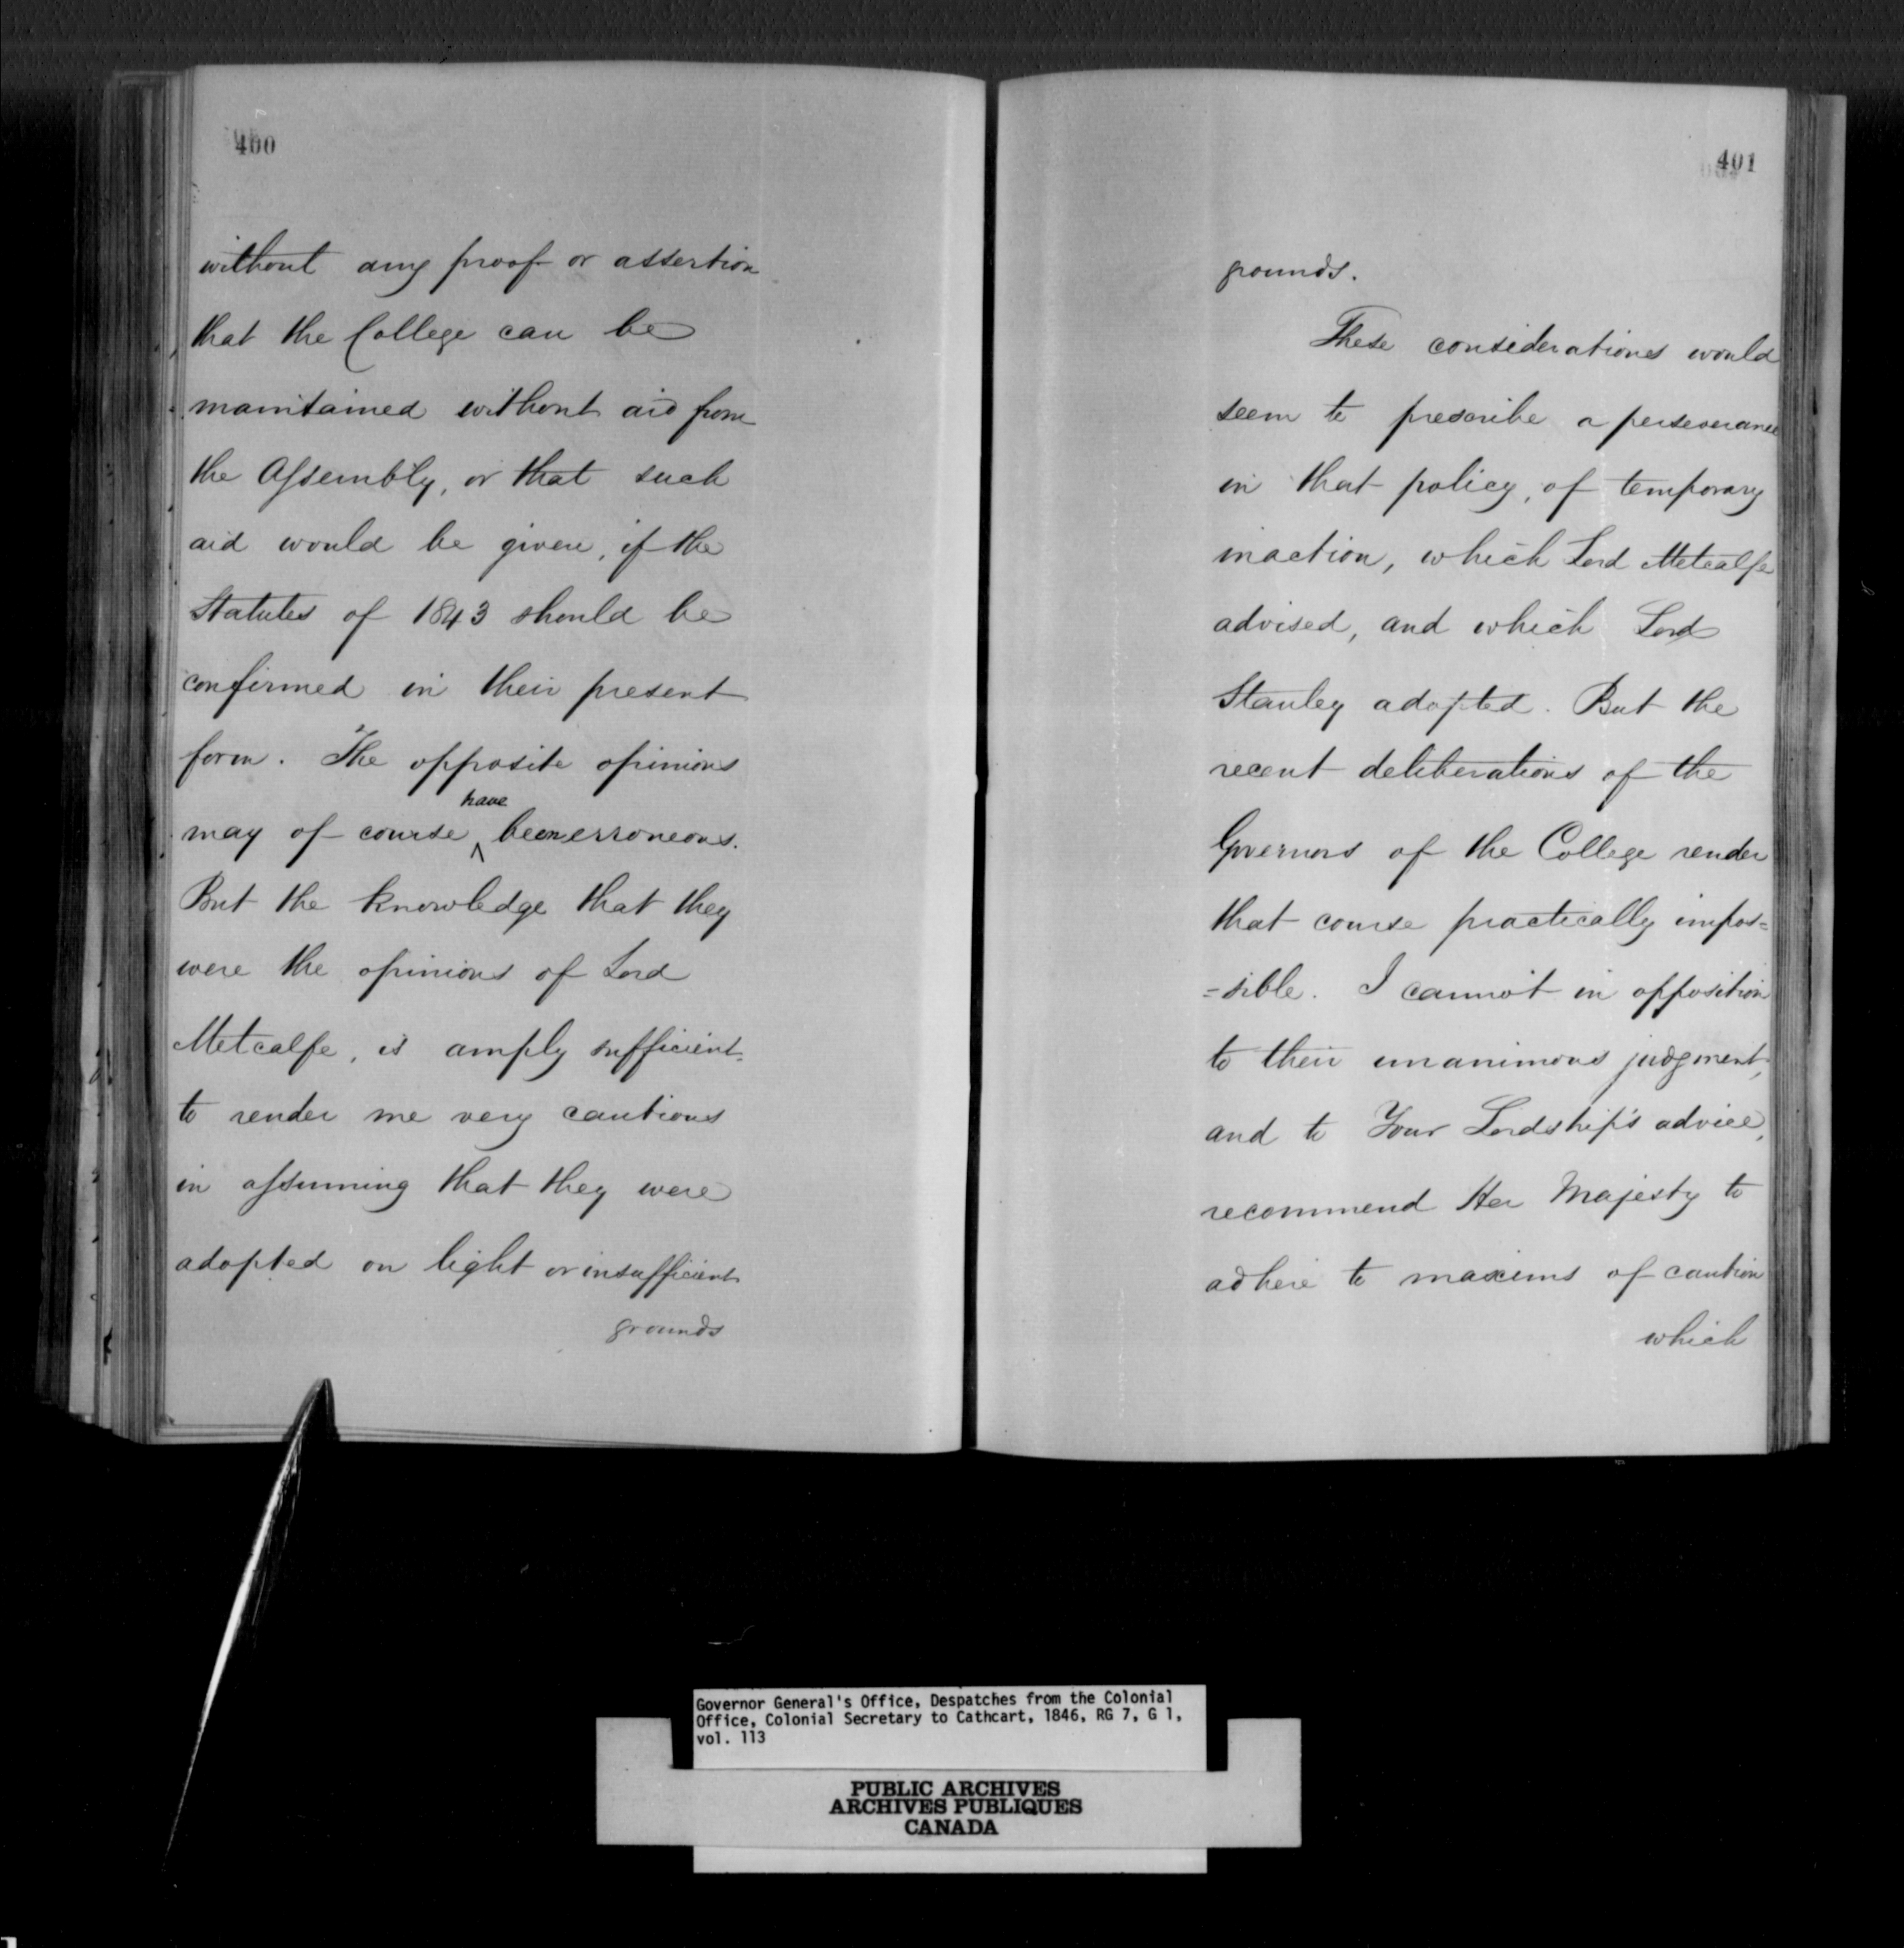 400
without any proof or assertion
that the College can be
maintained without aid from
the Assembly, or that such
aid would be given, if the
Statutes of 1843 should be
confirmed in their present
form. The opposite opinions
may of course ^have been erroneous.
But the knowledge that they
were the opinions of Lord
Metcalfe, is amply sufficient
to render me very cautious
in assuming that they were
adopted on light or insufficient
grounds
401
grounds.
These considerations would
seem to prescribe a perseverance
in that policy, of temporary
inaction, which Lord Metcalfe
advised, and which Lord
Stanley adopted. But the
recent deliberations of the
Governors of the College render
that course practically impos=
=sible. I cannot in opposition
to their unanimous judgment,
and to Your Lordship's advice,
recommend Her Majesty to
adhere to maxims of caution
which
Governor General's Office, Despatches from the Colonial
Office, Colonial Secretary to Cathcart, 1846, RG 7, G 1,
vol. 113
PUBLIC ARCHIVES
ARCHIVES PUBLIQUES
CANADA